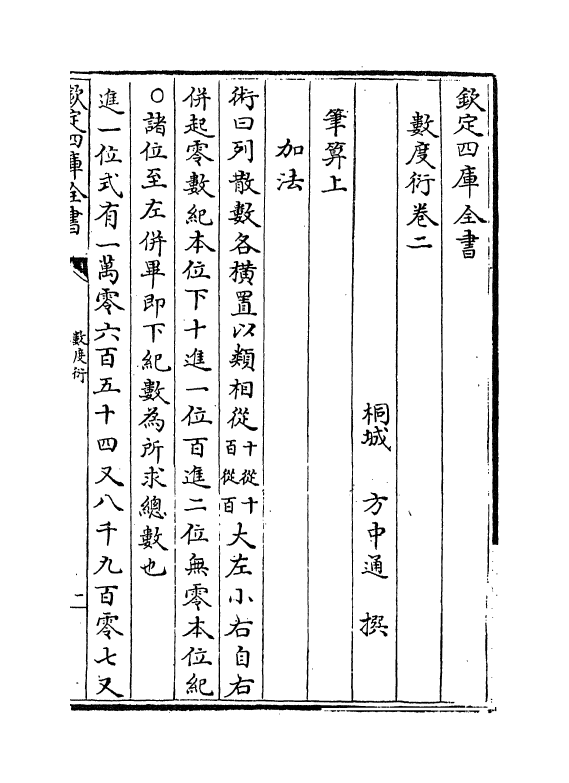 欽定四庫全書
數度衍卷二
桐城　方中通　撰
筆算上
加法
術曰列散數各横置以類相從十從十百從百大左小右自右
併起零數紀本位下十進一位百進二位無零本位紀
○諸位至左併畢即下紀數為所求總數也
進一位式有一萬零六百五十四又八千九百零七又
欽定四庫全書
數度衍
二